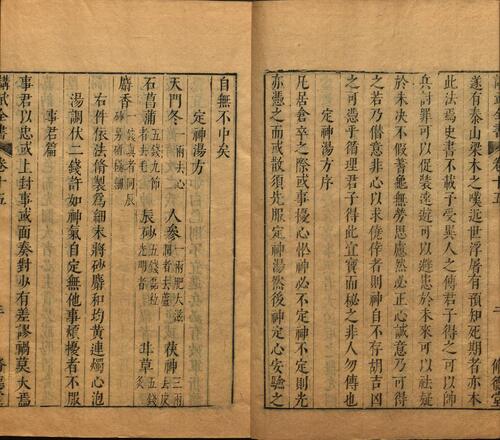 遂有泰山梁木之嘆近世浮屠有預知死期者亦本
此法焉史書不載予受異人之傳君子得之可以師
兵討罪可以促裝遠遊可以避患於未來可以祛疑
於未决不假蓍龜無勞思慮然必正心誠意乃可得
之若乃僣意非心以求僥倖者則神自不存胡吉凶
之可憑乎循理君子得此宜寳而秘之非人勿傳也
定神湯方序
凡居倉卒之際或事擾心恠神必不定神不定則光
亦憑之而或散須先服定神湯然後神定心安驗之
自無不中矣
定神湯方
天門冬 一兩去心 人參 一兩肥大滋潤者去蘆 茯神 三兩去皮
石菖蒲 五錢九節者去毛 辰砂 五錢荳粒光明者 甘草 五錢炙
麝香 一錢眞者同辰砂另研極細
右件依法脩製爲細末將砂麝和均黄連燭心泡
湯調伏二錢許如神氣自定無他事煩擾者不服
事君篇
事君以忠或上封事或面奏對少有差謬禍莫大焉
講武全書 卷十五
脩德堂